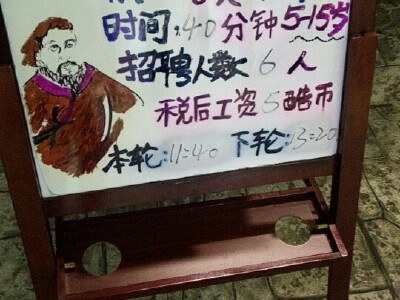 时间:40分钟 5-15岁
招聘人数 6 人
税后工资 5 酷币
本轮:11=40 下轮:13=20